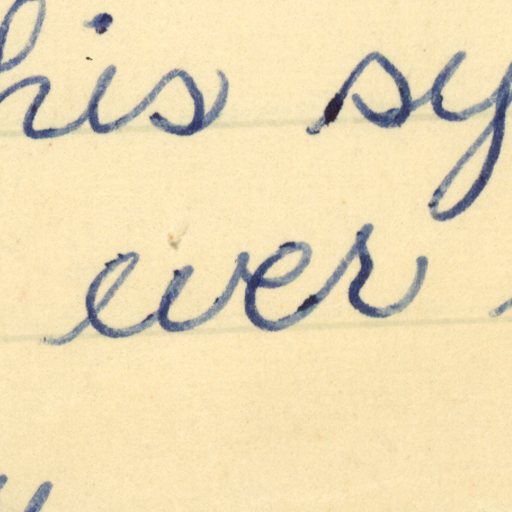 his sy
ever